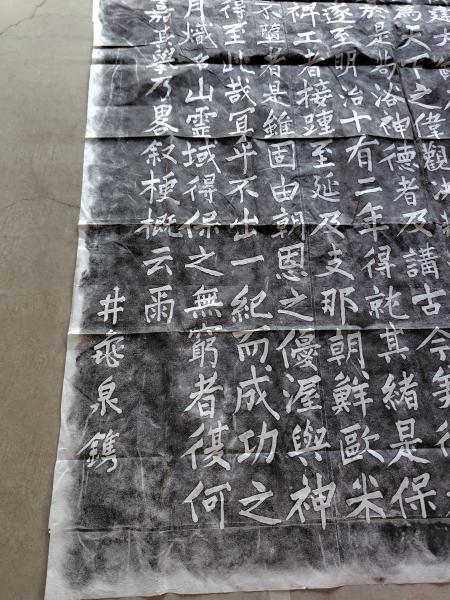 建大
為天下之偉觀決
於是皆浴神德者及講古今
遂至明治十有二年得就其緒是保
裨工者接踵至延及支那朝鮮歐米
不墮者是雖固由朝恩之優渥與神
得至此哉宜乎不出一紀而成功之
月熾名山靈域得保之無窮者復何
嘉其學乃畧叙梗概云爾
井亀泉鐫